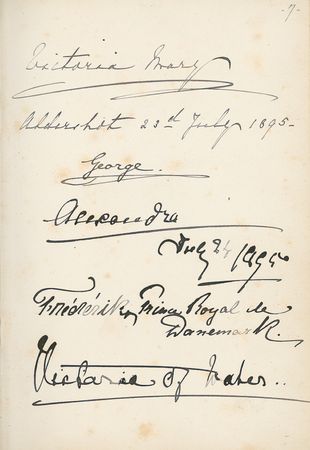 -7-
Victoria Mary
Aldershot 23rd July 1895-
George.
Alexandra
July 24 1895
Frédérik, Prince Royal de
Danemark.
Victoria of Wales..